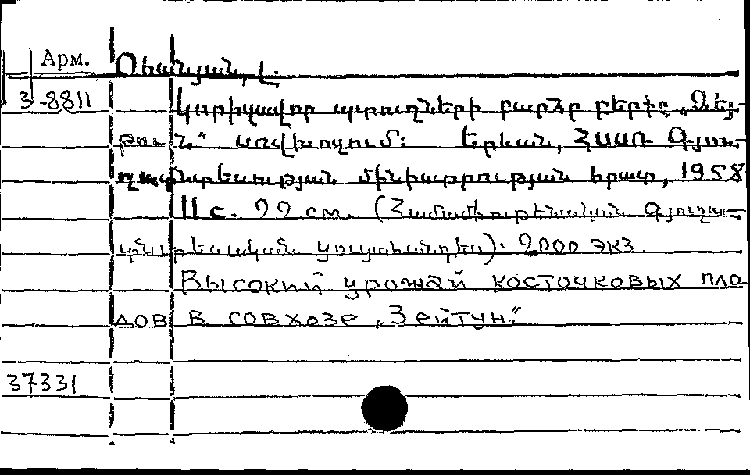 Арм. Օհանյան, Լ.
3-8811 Կորիզավոր պտուղների բարձր բերքը „Զեյ-
թուն“ սովխոզում: Երևան, ՀՍՍՌ Գյու-
ղատնտեսության մինիստրության հրատ, 1958
11 с. 22 см. (Համամիութենական գյուղա-
տնտեսական ցուցահանդես). 2000 экз.
Высокий урожай косточковых пло
дов в совхозе „Зейтун“.
37331